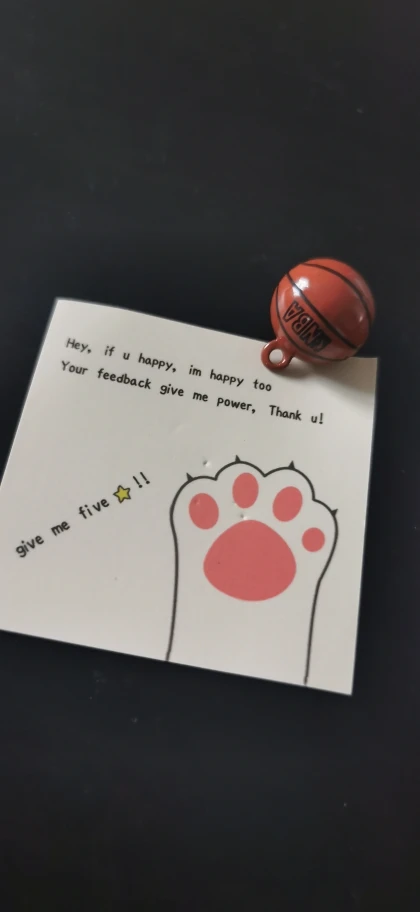 Hey, if u happy, im happy too
Your feedback give me power, Thank u!
give me five ⭐!!